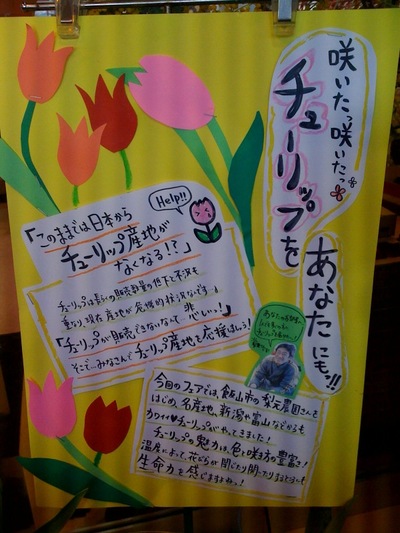 咲いたっ咲いたっ
チューリップを
あなたにも!!
Help!!
「このままでは日本から
チューリップ産地が
なくなる!?」
重なり現在産地が危機的状況なんです…
「チューリップが販売できないなんて悲しいっ!」
そこで…みなさんでチューリップ産地を応援しましょう!
今回のフェアでは、飯山市の梨元農園さんを
はじめ、名産地、新潟や富山などからも
カワイイチューリップがやってきました!
チューリップの魅力は、色と咲き方の豊富さ!
温度によって、花びらが閉じたり開いたりするところに
生命力を感じますねっ!